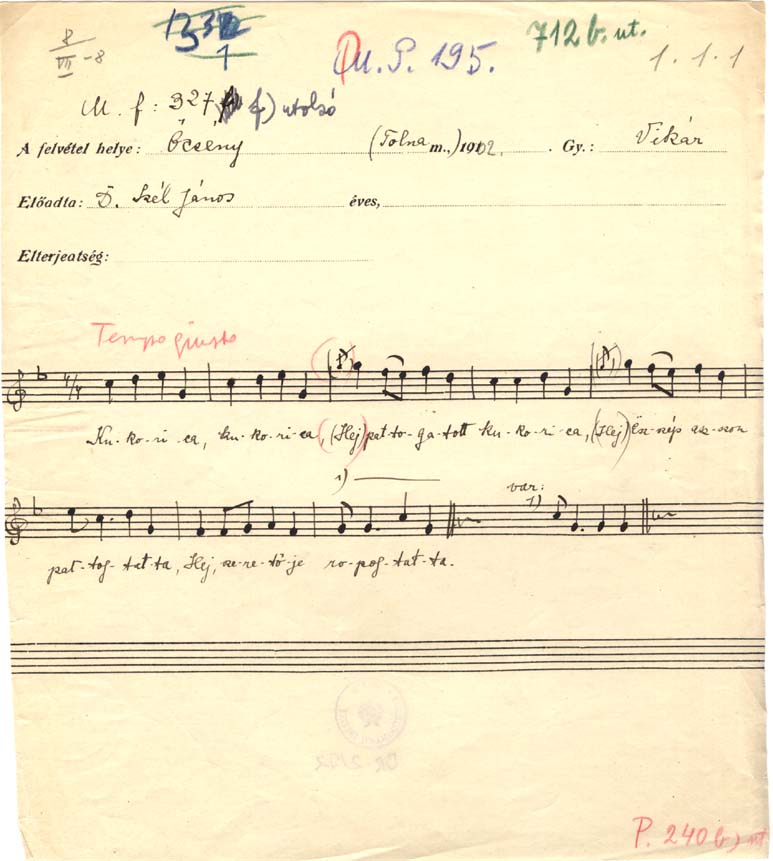 8
VII -8
1
M. P. 195.
712 b. ut.
1. 1. 1
M. f: 327 f) utolsó
A felvétel helye: Őcsény (Tolna m.,) 1902. Gy.: Vikár
Előadta: D. Szél János éves,
Elterjedtség:
Tempo giusto
4/4
Ku-ko-ri-ca, ku-ko-ri-ca, (Hej) pat-to-ga-tott ku-ko-ri-ca, (Hej) Ész-szép asz-szon
1)
var:
1)
pat-tog-tat-ta, Hej, sze-re-tő-je ro-pog-tat-ta.
P. 240 b) ut